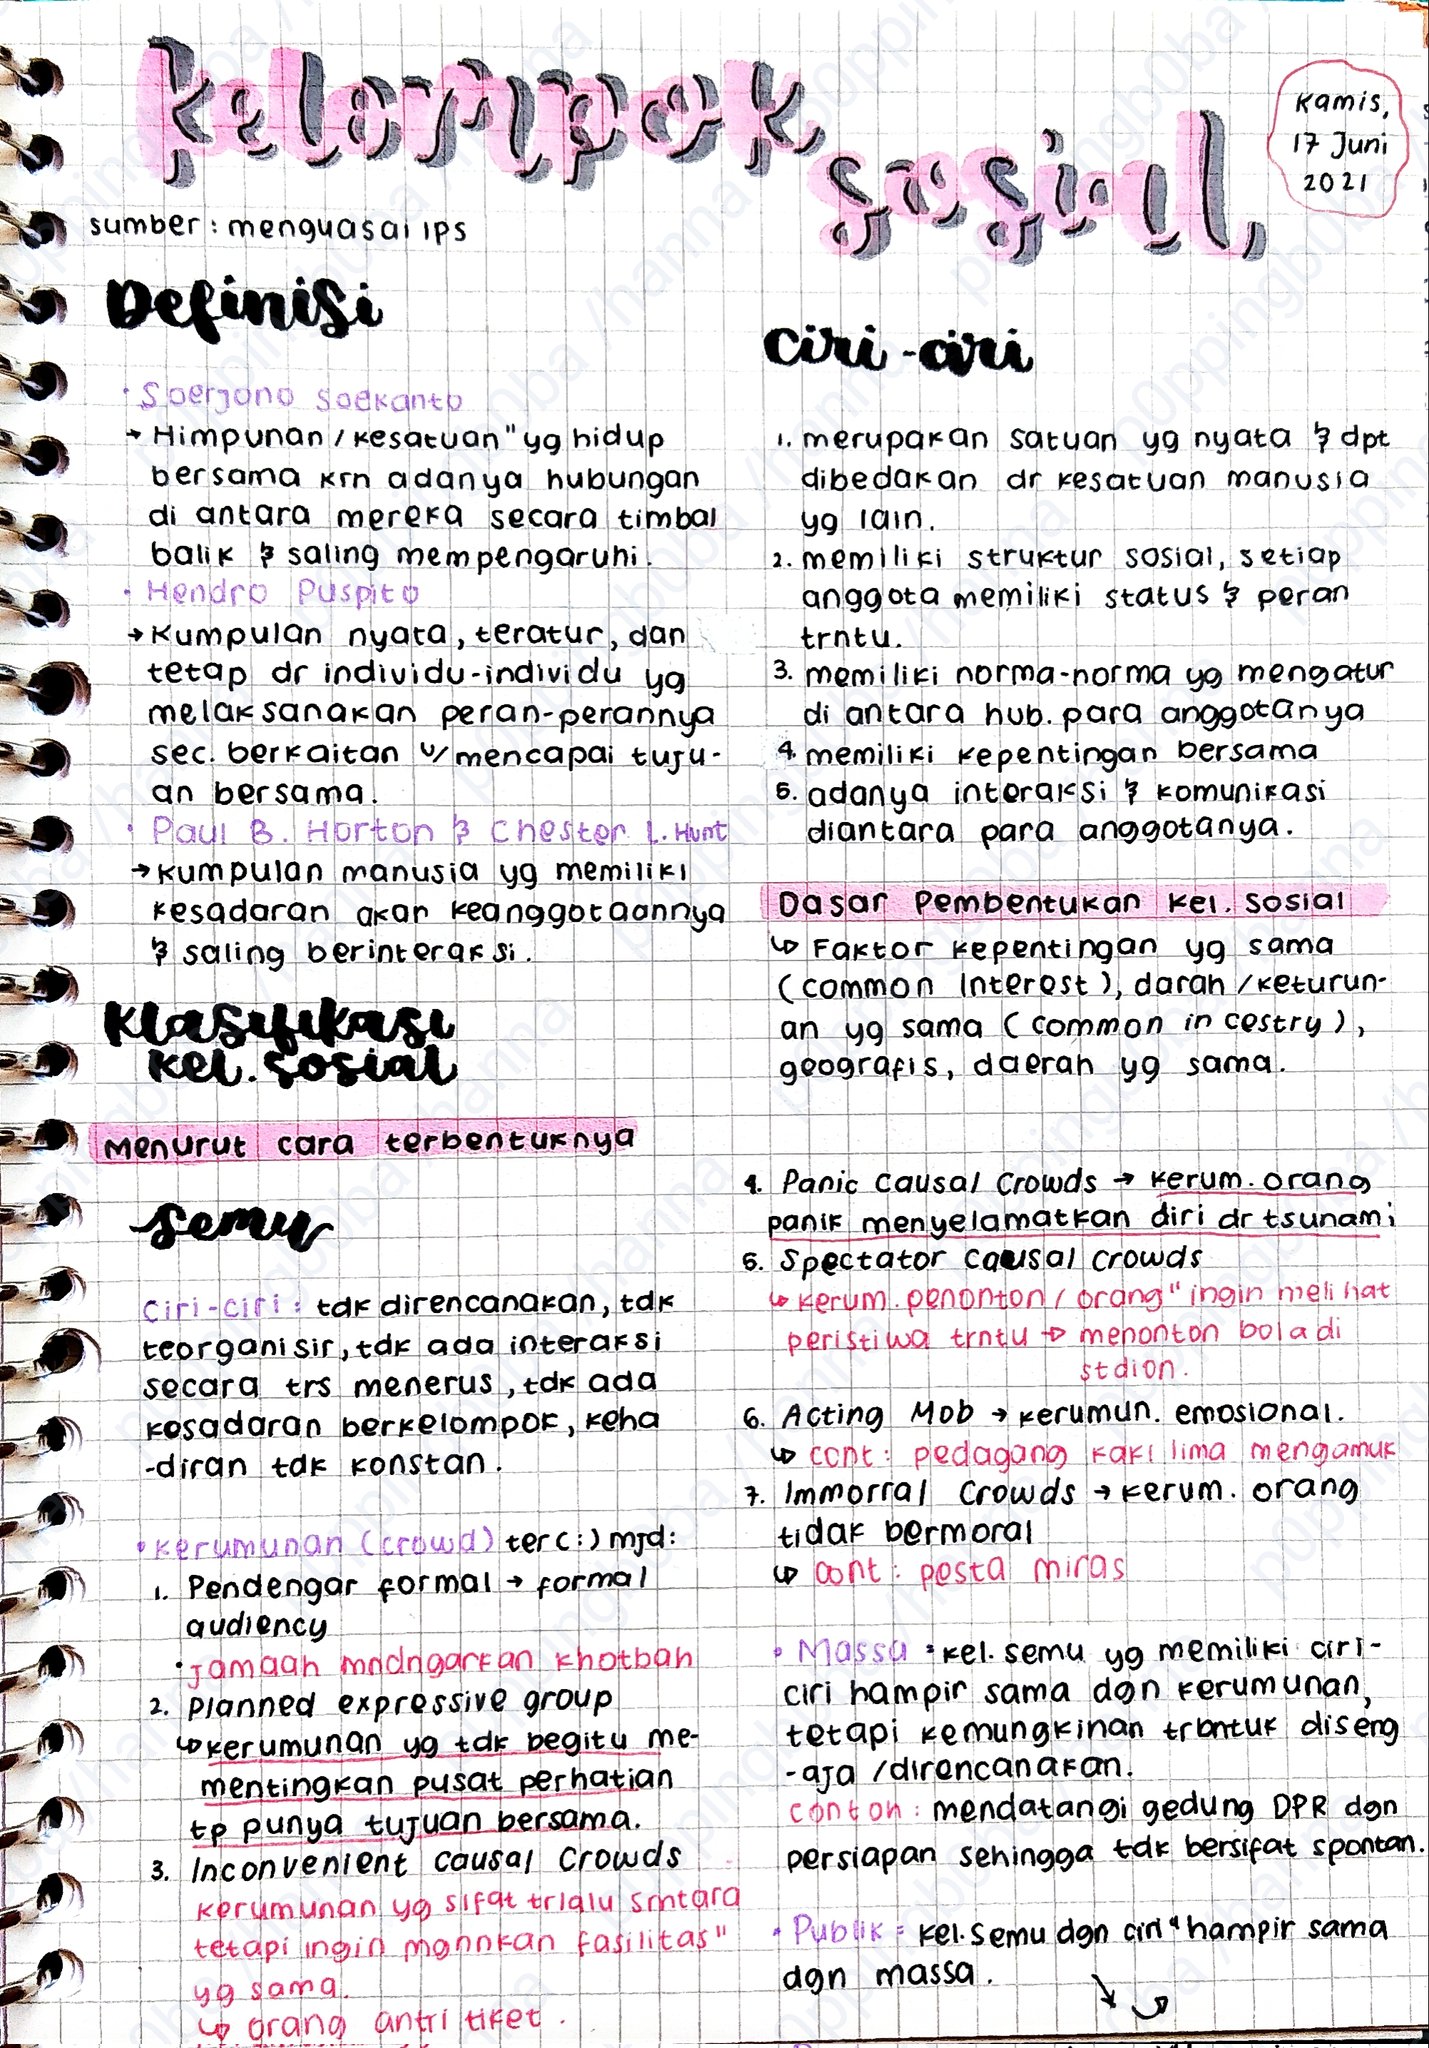 kelompok
sosial
Kamis,
17 Juni
2021
sumber : menguasai IPS
Definisi
• Soerjono Soekanto
→ Himpunan / kesatuan" yg hidup
bersama krn adanya hubungan
di antara mereka secara timbal
balik & saling mempengaruhi.
• Hendro Puspito
→ Kumpulan nyata, teratur, dan
tetap dr individu-individu yg
melaksanakan peran-perannya
sec. berkaitan u/ mencapai tuju-
an bersama.
• Paul B. Horton & Chester L. Hunt
→ kumpulan manusia yg memiliki
kesadaran akan keanggotaannya
& saling berinteraksi.
Ciri-ciri
1. merupakan satuan yg nyata & dpt
dibedakan dr kesatuan manusia
yg lain.
2. memiliki struktur sosial, setiap
anggota memiliki status & peran
trntu.
3. memiliki norma-norma yg mengatur
di antara hub. para anggotanya
4. memiliki kepentingan bersama
5. adanya interaksi & komunikasi
diantara para anggotanya.
Dasar Pembentukan Kel. Sosial
↳ Faktor kepentingan yg sama
(common Interest), darah / keturun-
an yg sama (common in cestry),
geografis, daerah yg sama.
Klasifikasi
kel. sosial
Menurut cara terbentuknya
Semu
Ciri-ciri : tdk direncanakan, tdk
teorganisir, tdk ada interaksi
secara trs menerus, tdk ada
kesadaran berkelompok, keha
-diran tdk konstan.
• Kerumunan (crowd) ter (:) mjd:
1. Pendengar formal → formal
audiency
• jamaah mndngarkan khotbah
2. Planned expressive group
↳ kerumunan yg tdk begitu me-
mentingkan pusat perhatian
tp punya tujuan bersama.
3. Inconvenient causal Crowds
kerumunan yg sifat trlalu smtara
tetapi ingin mgnnkan fasilitas"
yg sama.
↳ orang antri tiket.
4. Panic Causal Crowds → kerum. orang
panik menyelamatkan diri dr tsunami
5. Spectator Causal Crowds
↳ kerum. penonton / orang" ingin melihat
peristiwa trntu → menonton bola di
stdion.
6. Acting Mob → kerumun. emosional.
↳ cont : pedagang kaki lima mengamuk
7. Immorral Crowds → kerum. orang
tidak bermoral
↳ cont : pesta miras
• Massa : kel. semu yg memiliki ciri-
ciri hampir sama dgn kerumunan,
tetapi kemungkinan trbntuk diseng
-aja / direncanakan.
contoh : mendatangi gedung DPR dgn
persiapan sehingga tdk bersifat spontan.
• Publik = kel. semu dgn ciri" hampir sama
dgn massa.